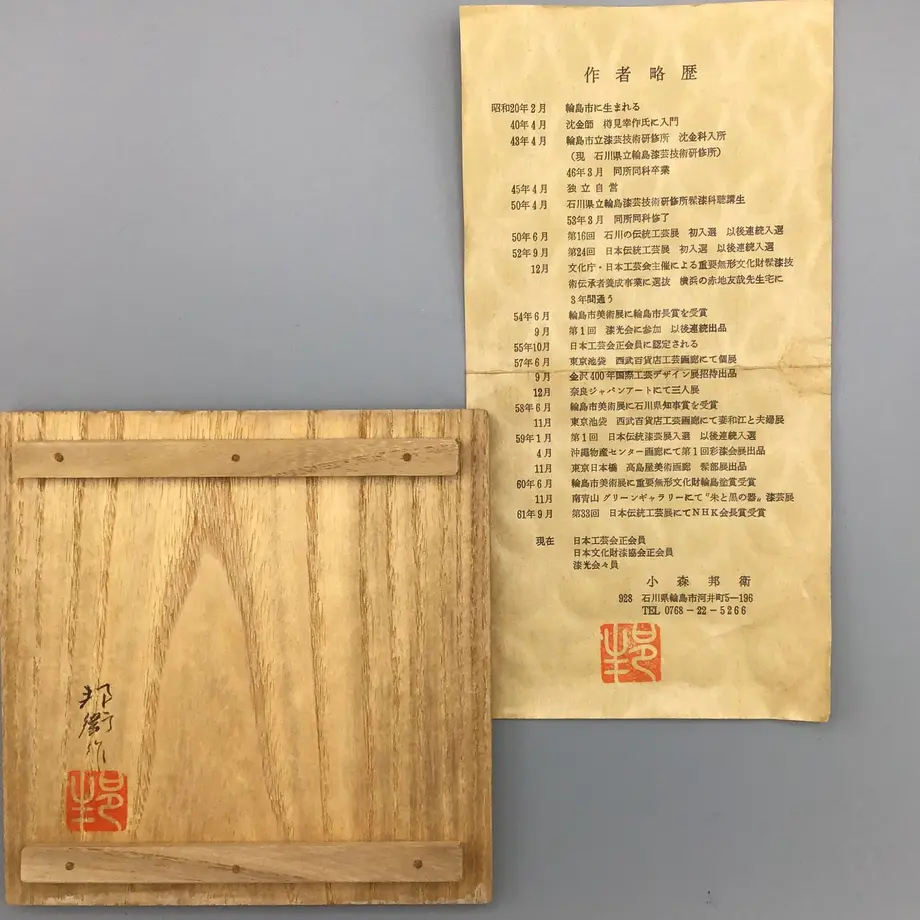 作者略歴
昭和20年2月 輪島市に生まれる
40年4月 沈金師 樽見幸作氏に入門
43年4月 輪島市立漆芸技術研修所 沈金科入所
(現 石川県立輪島漆芸技術研修所)
46年3月 同所同科卒業
45年4月 独立自営
50年4月 石川県立輪島漆芸技術研修所髹漆科聴講生
53年3月 同所同科修了
50年6月 第16回 石川の伝統工芸展 初入選 以後連続入選
52年9月 第24回 日本伝統工芸展 初入選 以後連続入選
12月 文化庁・日本工芸会主催による重要無形文化財髹漆技
術伝承者養成事業に選抜 横浜の赤地友哉先生宅に
3年間通う
54年6月 輪島市美術展に輪島市長賞を受賞
9月 第1回 漆光会に参加 以後連続出品
55年10月 日本工芸会正会員に認定される
57年6月 東京池袋 西武百貨店工芸画廊にて個展
9月 金沢400年国際工芸デザイン展招待出品
12月 奈良ジャパンアートにて三人展
58年6月 輪島市美術展に石川県知事賞を受賞
11月 東京池袋 西武百貨店工芸画廊にて妻和江と夫婦展
59年1月 第1回 日本伝統漆芸展入選 以後連続入選
4月 沖縄物産センター画廊にて第1回彩漆会展出品
11月 東京日本橋 高島屋美術画廊 髹部展出品
60年6月 輪島市美術展に重要無形文化財輪島塗賞受賞
11月 南青山 グリーンギャラリーにて〝朱と黒の器〟漆芸展
61年9月 第33回 日本伝統工芸展にてNHK会長賞受賞
現在 日本工芸会正会員
日本文化財漆協会正会員
漆光会々員
小森邦衛
928 石川県輪島市河井町5―196
TEL 0768-22-5266
邦
邦衛作
邦